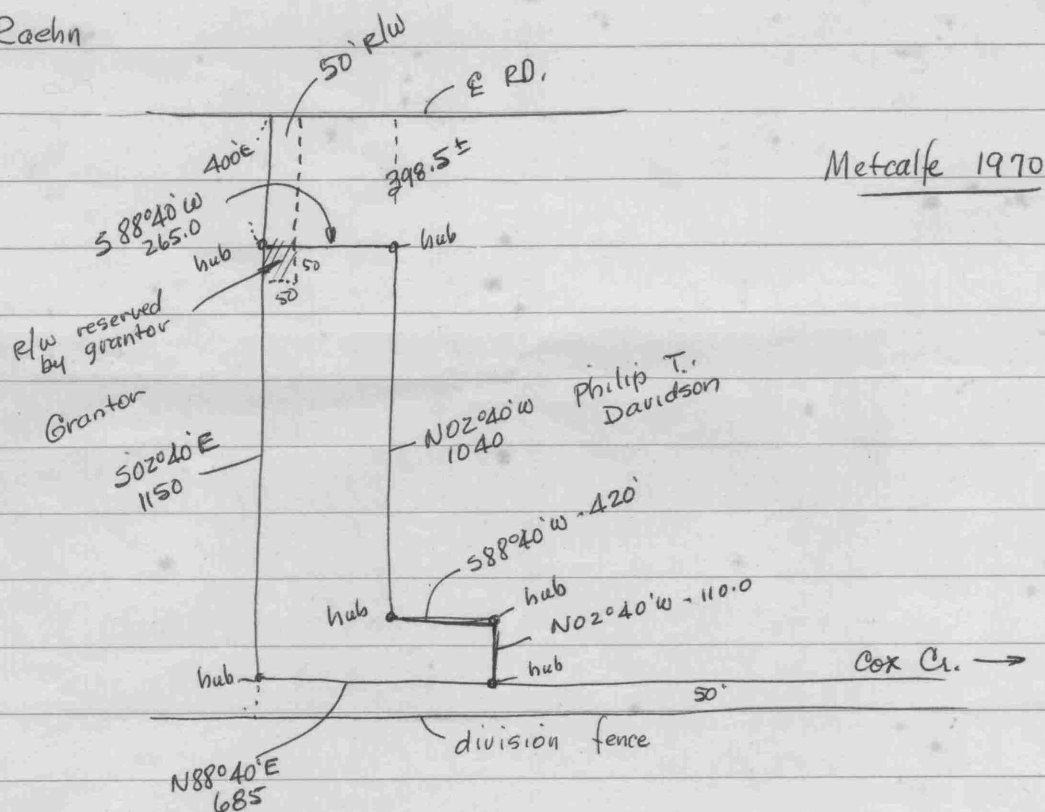 Raehn
50' R/W
℄ RD.
400'±
398.5±
Metcalfe 1970
S 88°40'W
265.0
hub
hub
50
50
R/W reserved
by grantor
Grantor
S02°40'E
1150
N02°40'W
1040
Philip T.
Davidson
S88°40'W - 420'
hub
hub
N02°40'W - 110.0
hub
hub
Cox Cr. →
50'
division fence
N88°40'E
685